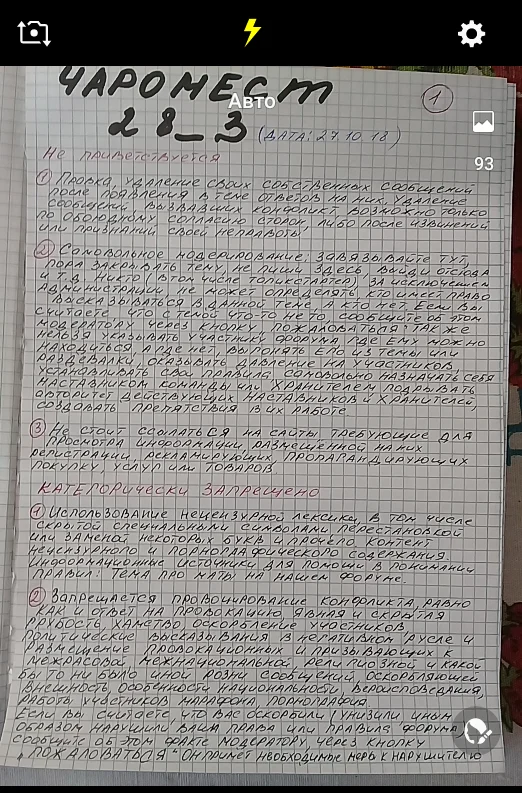 ЧАРОМЕСТ
Авто
1
28_3 (ДАТА: 27.10.18)
93
Не приветствуется
1 Правка, удаление своих собственных сообщений
после появления в теме ответов на них. Удаление
сообщений, вызвавших конфликт возможно только
по обоюдному согласию сторон, либо после извинений
или признаний своей неправоты.
2 Самовольное модерирование: завязывайте тут,
пора закрывать тему, не пиши здесь, выйди отсюда
и т.д. Никто (в том числе топикстартер) за исключением
администрации не может определять, кто имеет право
высказываться в данной теме а кто нет Если вы
считаете, что с темой что-то не то, сообщите об этом
модератору через кнопку "пожаловаться". Так же
нельзя указывать участнику форума, где ему можно
находится а где нет, выгонять его из темы или
раздевалки, оказывать давление на участников,
устанавливать свои правила, самовольно назначать себя
наставником команды или хранителем подрывать
авторитет действующих наставников и хранителей,
создавать препятствия в их работе.
3 Не стоит ссылаться на сайты требующие для
просмотра информации, размещенной на них
регистрации, рекламирующих, пропагандирующих
покупку, услуг или товаров
Категорически запрещено
1 Использование нецензурной лексики, в том числе
скрытой специальными символами перестановкой
или заменой некоторых букв и прочего контент
нецензурного и порнографического содержания.
Информационные источники для помощи в понимании
правил: Тема про маты на нашем форуме.
2 Запрещается провоцирование конфликта, равно
как и ответ на провокацию явная и скрытая
грубость, хамство, оскорбление участников
политические высказывания в негативном русле и
размещение провокационных и призывающих к
межрасовой, межнациональной, религиозной и какой
бы то ни было иной розни сообщений, оскорбляющей
внешность, особенности национальности, вероисповедания,
работы участников марафона, порнография.
Если вы считаете, что вас оскорбили (унизили иным
образом нарушили ваши права или правила форума)
сообщите об этом факте модератору через кнопку
"пожаловаться" Он примет необходимые меры к нарушителю